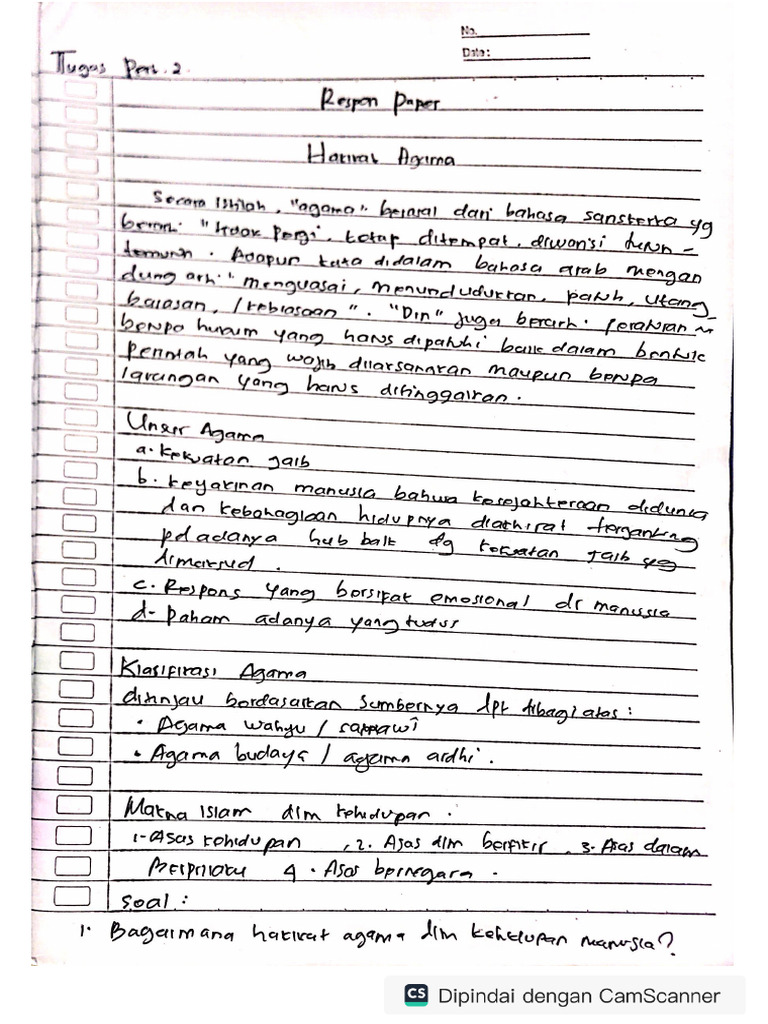 No.
Date:
Tugas Per. 2.
Respon Paper
Hakikat Agama
Secara istilah, "agama" berasal dari bahasa sanskerta yg
berarti "tidak pergi, tetap ditempat, diwarisi turun -
temurun. Adapun kata didalam bahasa arab mengan
dung arti "menguasai, menundudukkan, patuh, utang,
balasan, / kebiasaan". "Din" juga berarti peraturan
berupa hukum yang harus dipatuhi baik dalam bentuk
perintah yang wajib dilaksanakan maupun berupa
larangan yang harus ditinggalkan.
Unsur Agama
a. kekuatan gaib
b. keyakinan manusia bahwa kesejahteraan didunia
dan kebahagiaan hidupnya diakhirat tergantung
pd adanya hub baik dg kekuatan gaib yg
dimaksud.
c. Respons yang bersifat emosional dr manusia
d- paham adanya yang kudus
Klasifikasi Agama
ditinjau berdasarkan sumbernya dpt dibagi atas :
• Agama wahyu / samawi
• Agama budaya / agama ardhi.
Makna islam dlm kehidupan.
1- Asas kehidupan , 2. Asas dlm berfikir , 3. Asas dalam
Berprilaku 4. Asas bernegara.
soal :
1. Bagaimana hakikat agama dlm kehidupan manusia?
CS Dipindai dengan CamScanner